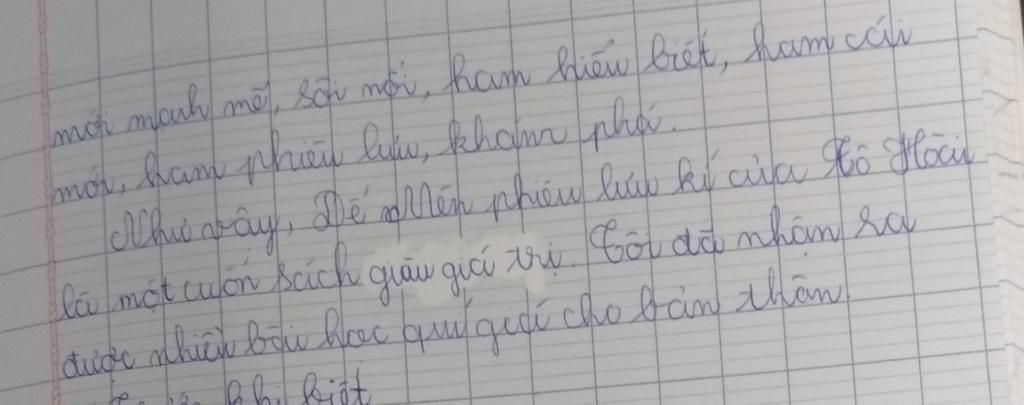 mới mạnh mẽ, sôi nổi, ham hiểu biết, ham cái
mới, ham phiêu lưu, khám phá.
Như vậy, Dế Mèn phiêu lưu kí của Tô Hoài
là một cuốn sách giàu giá trị. Tôi đã nhận ra
được nhiều bài học quý giá cho bản thân
khi biết